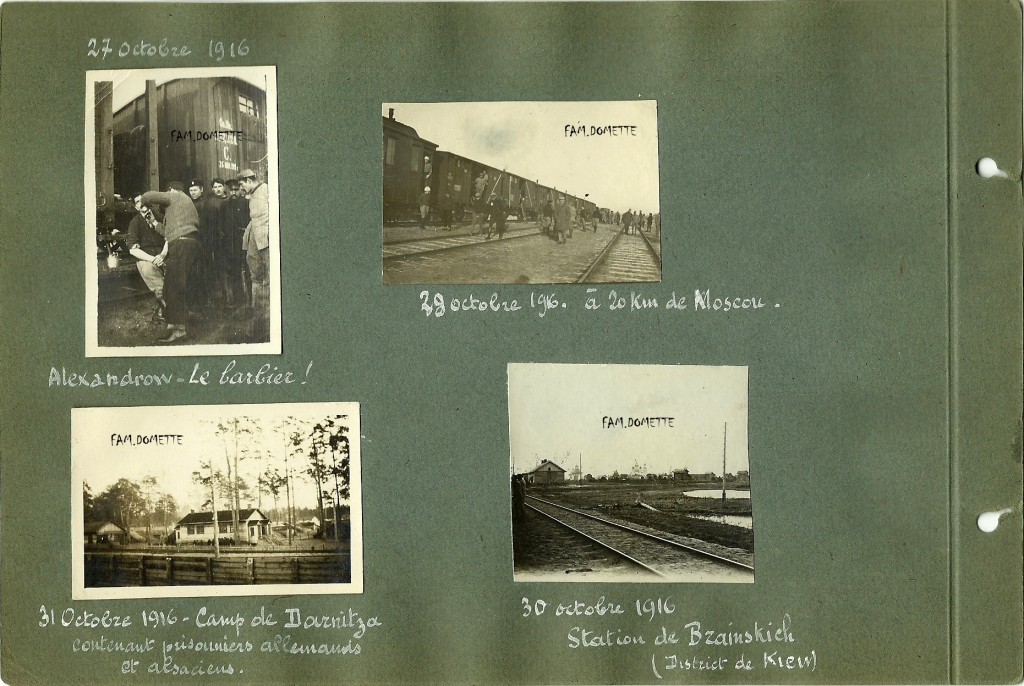 27 octobre 1916
FAM. DOMETTE
C.
Alexandrow - Le barbier !
FAM. DOMETTE
29 octobre 1916. à 20 Km de Moscou.
FAM. DOMETTE
31 Octobre 1916 - Camp de Darnitza
contenant prisonniers allemands
et alsaciens.
FAM. DOMETTE
30 octobre 1916
Station de
(District de Kiew)